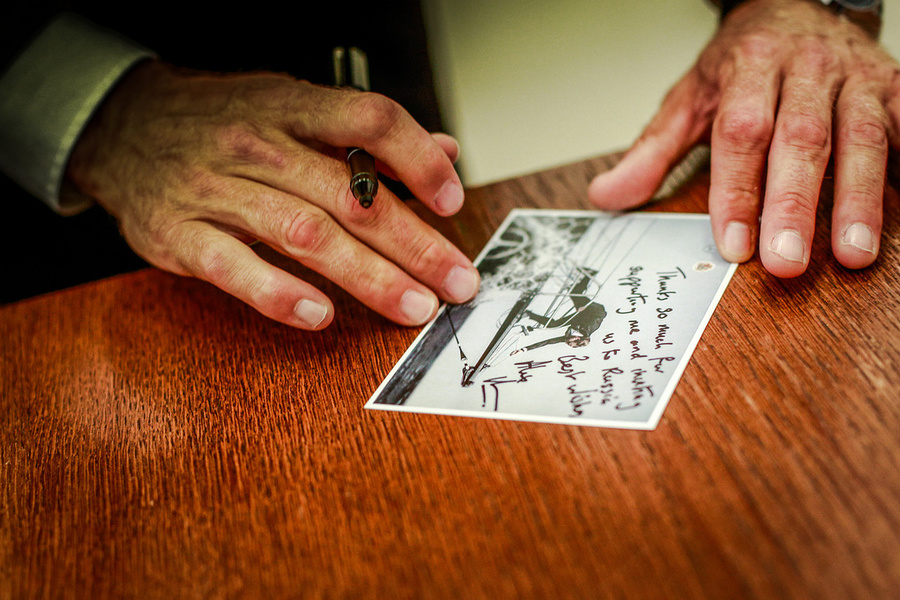 Thanks so much for
supporting me and inviting
us to Russia
Best wishes